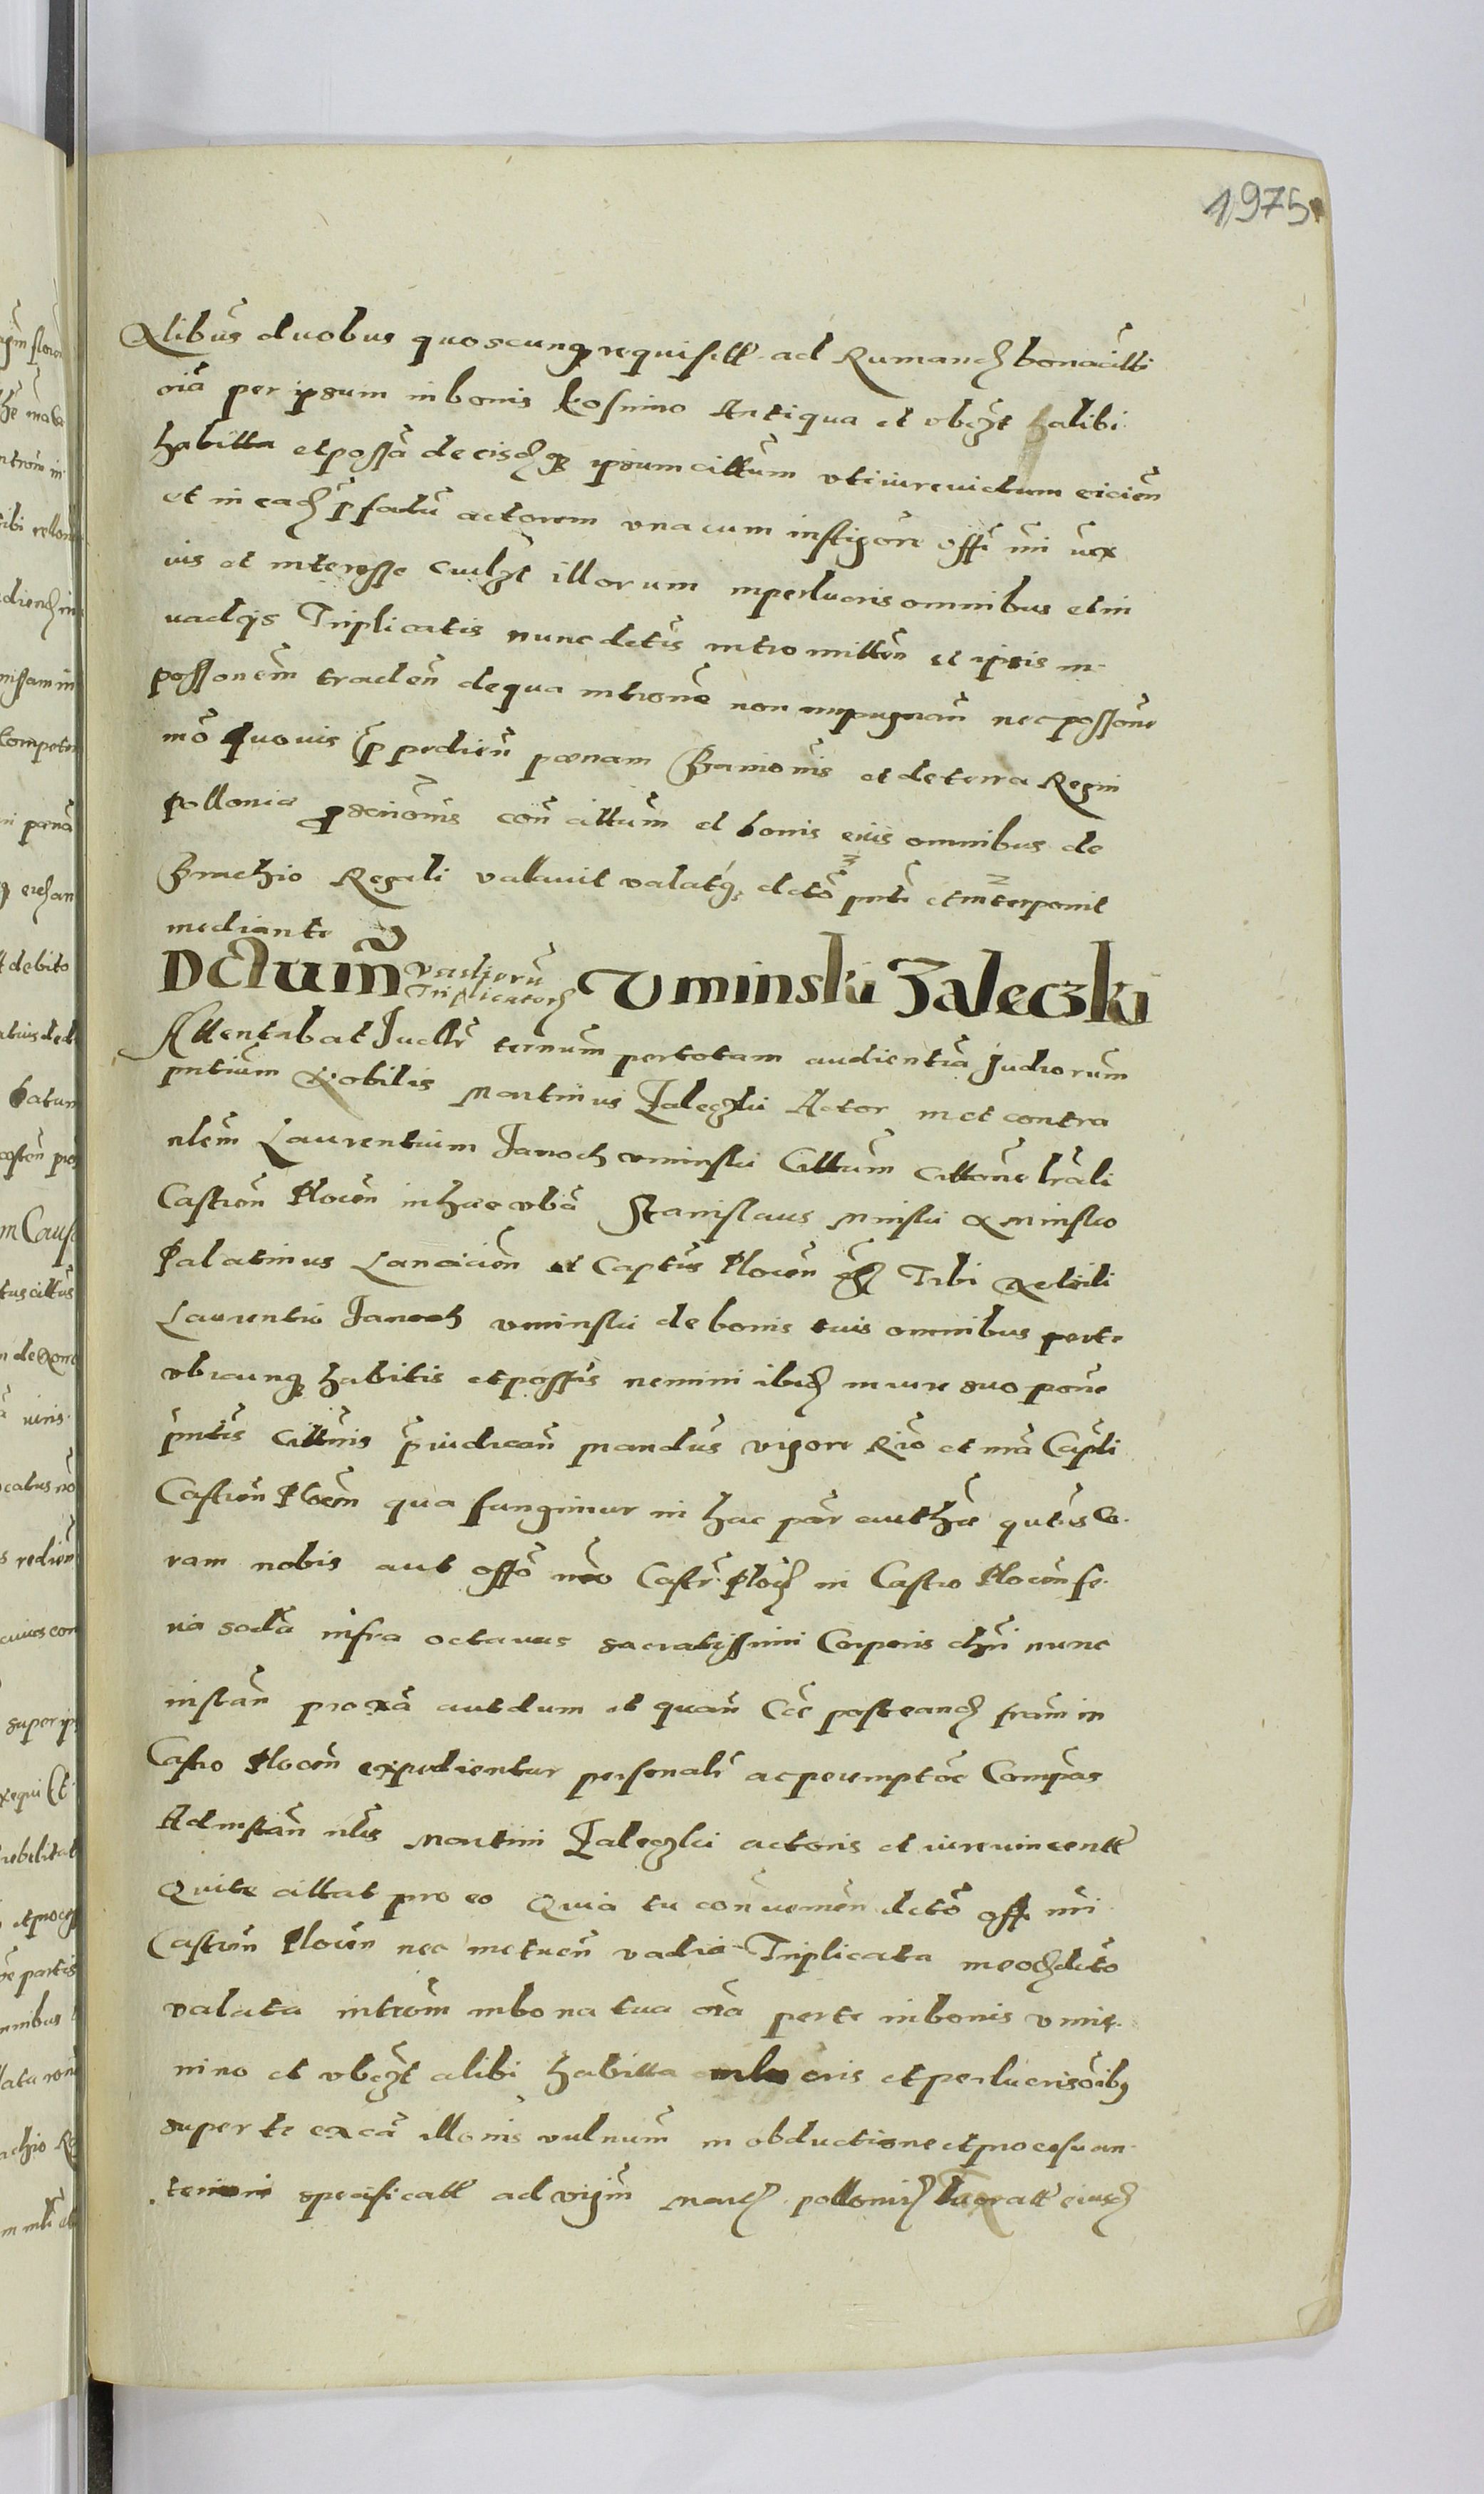 1975
Nlibus duobus quoscunq requisitt ad Rumand bona citti
oia per ipsum in bonis kosmino Antiqua et vbqzt halibi
habitta et possa decisq ipsum cittum vti iure victum eicien
et in ead pfatu actorem vna cum instigore offi nri
ius et interesse cuilzt illorum in perlucris omnibus et in
vadys Triplicatis nunc dctis intromitten et ipsis in
possonem traden de qua introne non impugnan nec possone
mo quouis ppedien poenam Bannionis et de terra Regni
Pollonia pscrionis con cittum et bonis eius omnibus de
Brachio Regali vallauit valatq dcto pnti et interponit
mediante
Dctum vadiorum Triplicatord Vminski Zaleczki
Attentabat Judlr ternum per totam audientia Judiorum
pntium Nobilis Martinus Zaleczki Actor in et contra
nlem Laurentium Janoch vminski Cittum cittone lrali
Castren Plocen in haec vba Stanislaus Minski de Minsko
Palatinus Lancicien et Captus Plocen Tibi Nobili
Laurentio Janoch vminski de bonis tuis omnibus per te
vbicunq habitis et possis nemini ibid in iure suo pone
pntis cittnis piudican mandus vigore Rio et nra Capli
Castren Plocen qua fungimur in hac par authe qutus Co
ram nobis aut offo nro Castr. Plocz in Castro Plocen fe
ria scda infra octauas sacratissimi Corporis chri nunc
instan proxa aut dum et quan Cae posteand fram in
Castro Plocen expedientur personalr ac peremptoe Compas
Ad instan nlis Martini Zaleczki actoris et iurevincentt
Qui te cittat pro eo Quia tu conuemen dcto off nri
Castren Plocen nec metuen vadia Triplicata in eod dcto
valata introm in bona tua oia per te in bonis vmis
nino et vbqzt alibi habitta lucris et perlucris oibq
super te ex ca illonis vulnum in obductione et processu an
teriori specificatt ad vigm March pollonicz Luoratt eiusd